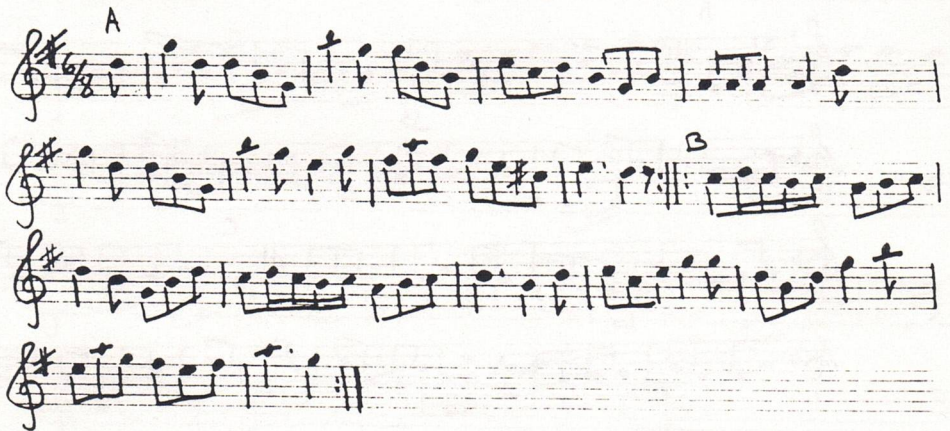 A
6/8
B